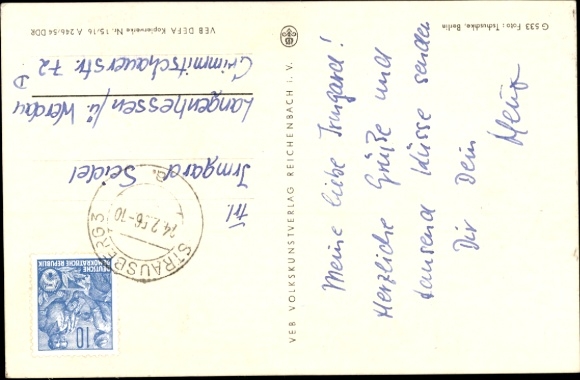 Meine liebe Irmgard!
Herzliche Grüße und
tausend Küsse senden
Dir Dein
Frl.
Irmgard Seidel
Langenhessen/ü. Werdau
Crimmitschauerstr. 72
D
STRAUSBERG 3
24.2.56-10
DEUTSCHE
DEMOKRATISCHE REPUBLIK
10
VEB VOLKSKUNSTVERLAG REICHENBACH I. V.
G 533 Foto: Tschuschke, Berlin
VEB DEFA Kopierwerke Nr. 15/16 A 246/54 DDR